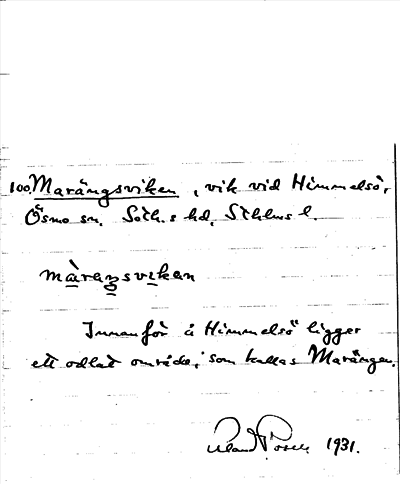 100. Marängsviken, vik vid Himmelsö,
Ösmo sn. Soth.s hd, Sthlms l.
màraŋsvikan
Innanför å Himmelsö ligger
ett odlat område, som kallas Marängen.
1931.